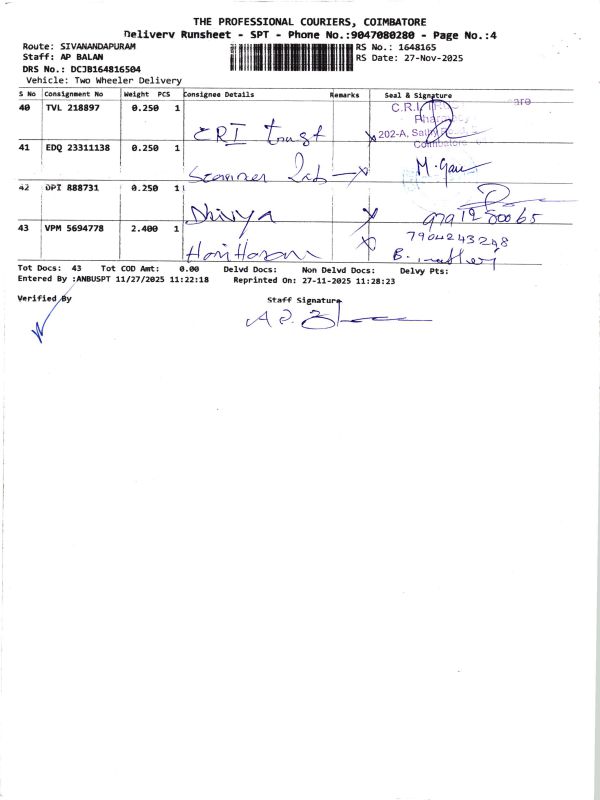 THE PROFESSIONAL COURIERS, COIMBATORE
Delivery Runsheet - SPT - Phone No.:9047080280 - Page No.:4
Route: SIVANANDAPURAM
RS No.: 1648165
Staff: AP BALAN
RS Date: 27-Nov-2025
DRS No.: DCJB164816504
Vehicle: Two Wheeler Delivery
S No Consignment No Weight PCS Consignee Details Remarks Seal & Signature
40 TVL 218897 0.250 1
CRI trust
C.R.I.
202-A,
41 EDQ 23311138 0.250 1
Scanner Lab
42 DPI 888731 0.250 1
Dhivya
43 VPM 5694778 2.400 1
7904243248
Tot Docs: 43 Tot COD Amt: 0.00 Delvd Docs: Non Delvd Docs: Delvy Pts:
Entered By :ANBUSPT 11/27/2025 11:22:18 Reprinted On: 27-11-2025 11:28:23
Verified By
Staff Signature